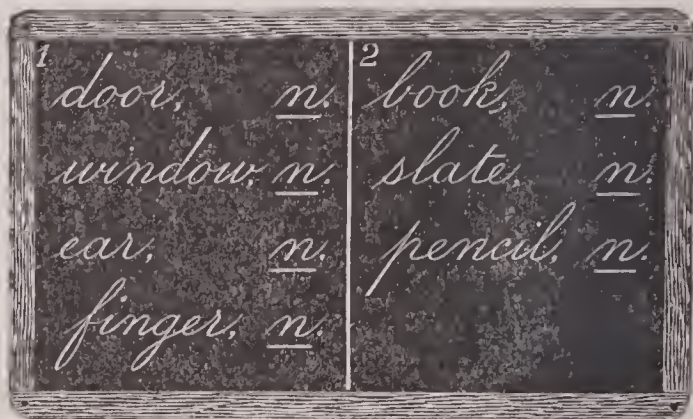 1
door, n.
window, n.
ear, n.
finger, n.
2
book, n.
slate, n.
pencil, n.